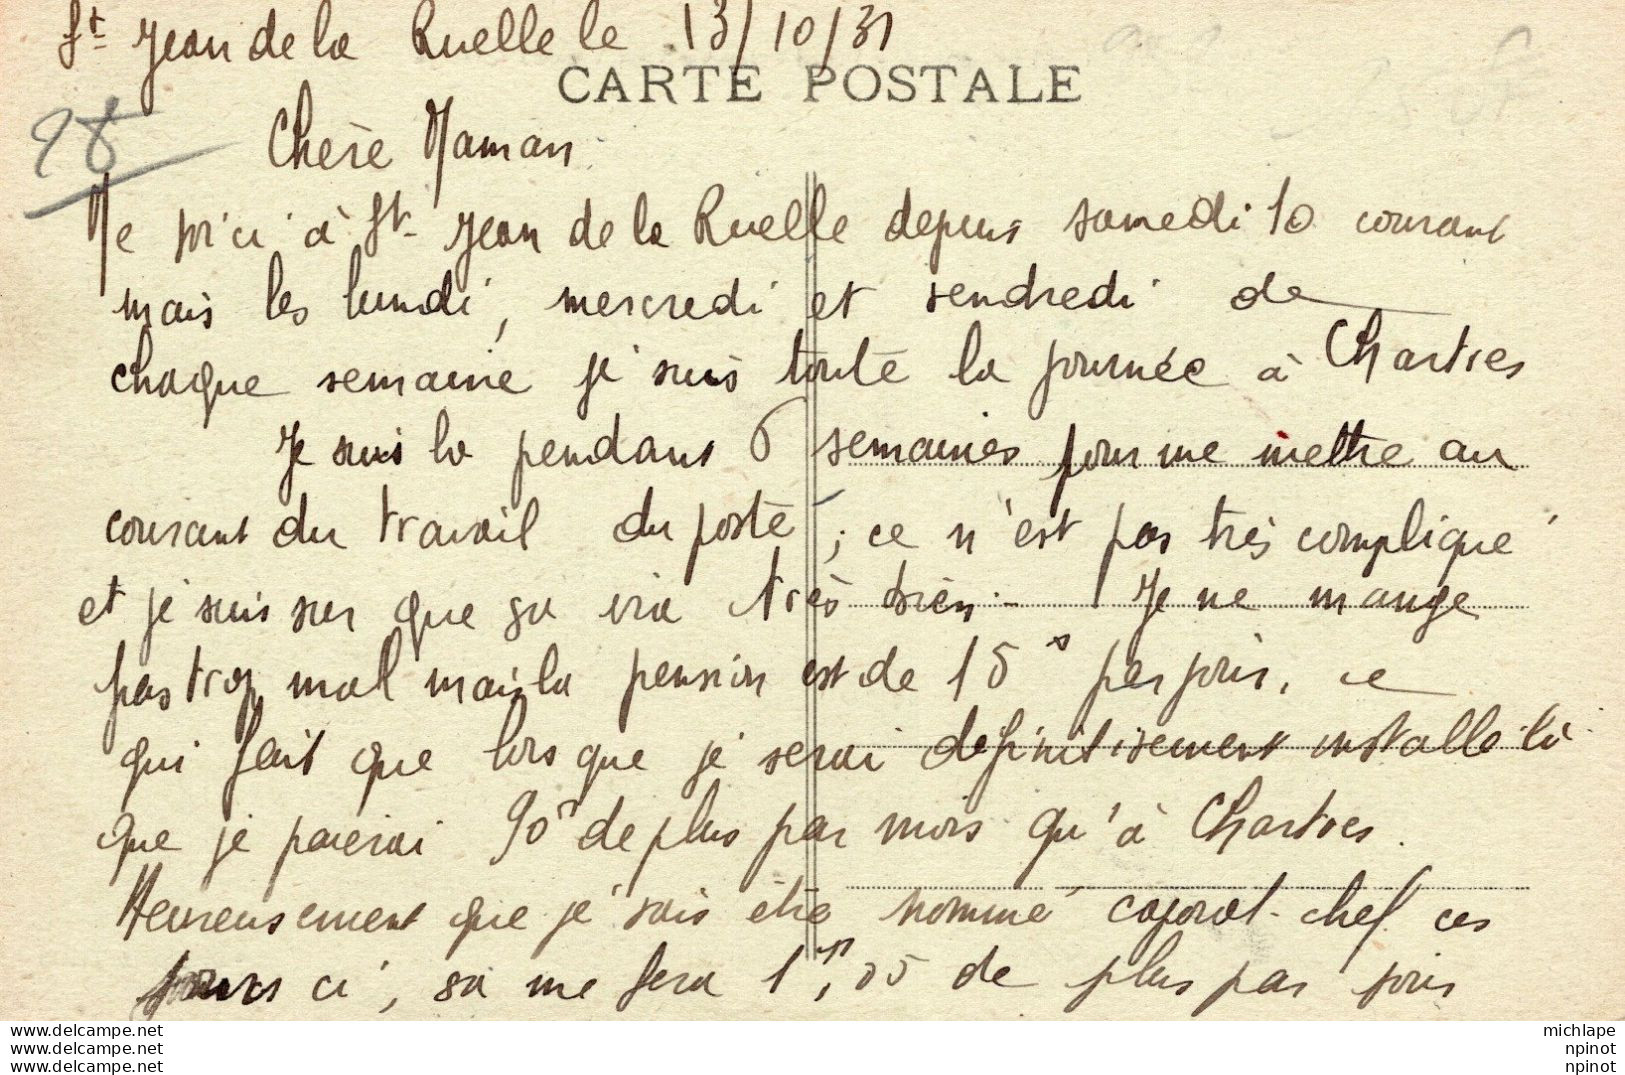 St Jean de la Ruelle le 13/10/31
CARTE POSTALE
98
Chère Maman
Me voici à St Jean de la Ruelle depuis samedi 10 courant
mais les lundi, mercredi et vendredi de
chaque semaine je suis toute la journée à Chartres
Je suis là pendant 6 semaines pour me mettre au
courant du travail du poste ; ce n'est pas très compliqué
et je suis sur que sa ira très bien. Je ne mange
pas trop mal mais la pension est de 15 f par jour, ce
qui fait que lorsque je serai definitivement installé ici
que je paierai 90 f de plus par mois qu'à Chartres.
Heureusement que je vais être nommé caporal-chef ces
jours ci, sa me fera 1 f, 05 de plus par jour
www.delcampe.net
www.delcampe.net
www.delcampe.net
michlape
npinot
npinot